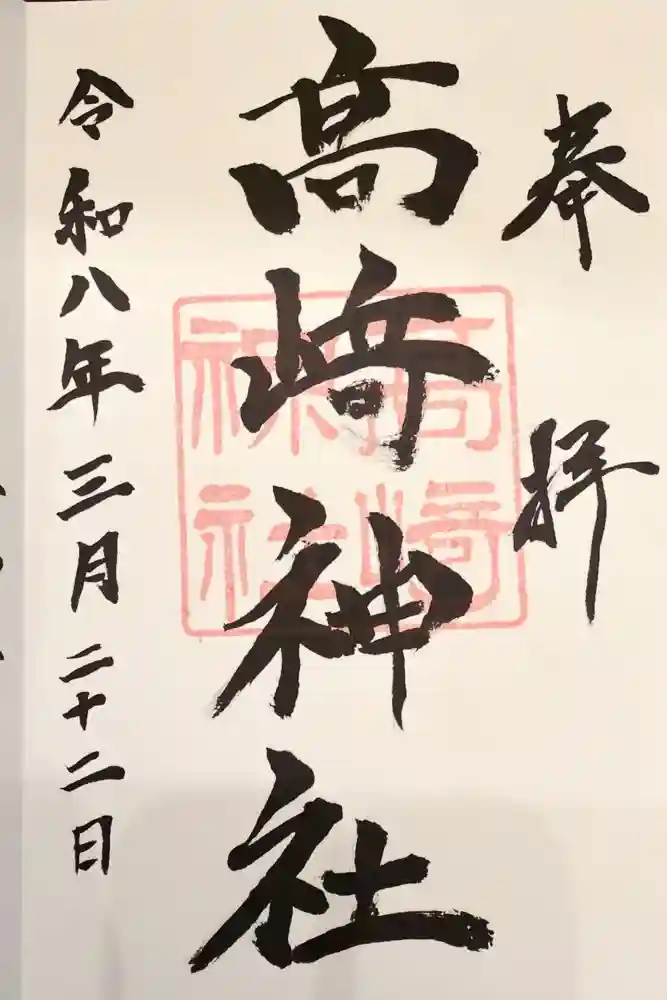 奉拝
高崎神社
令和八年三月二十二日